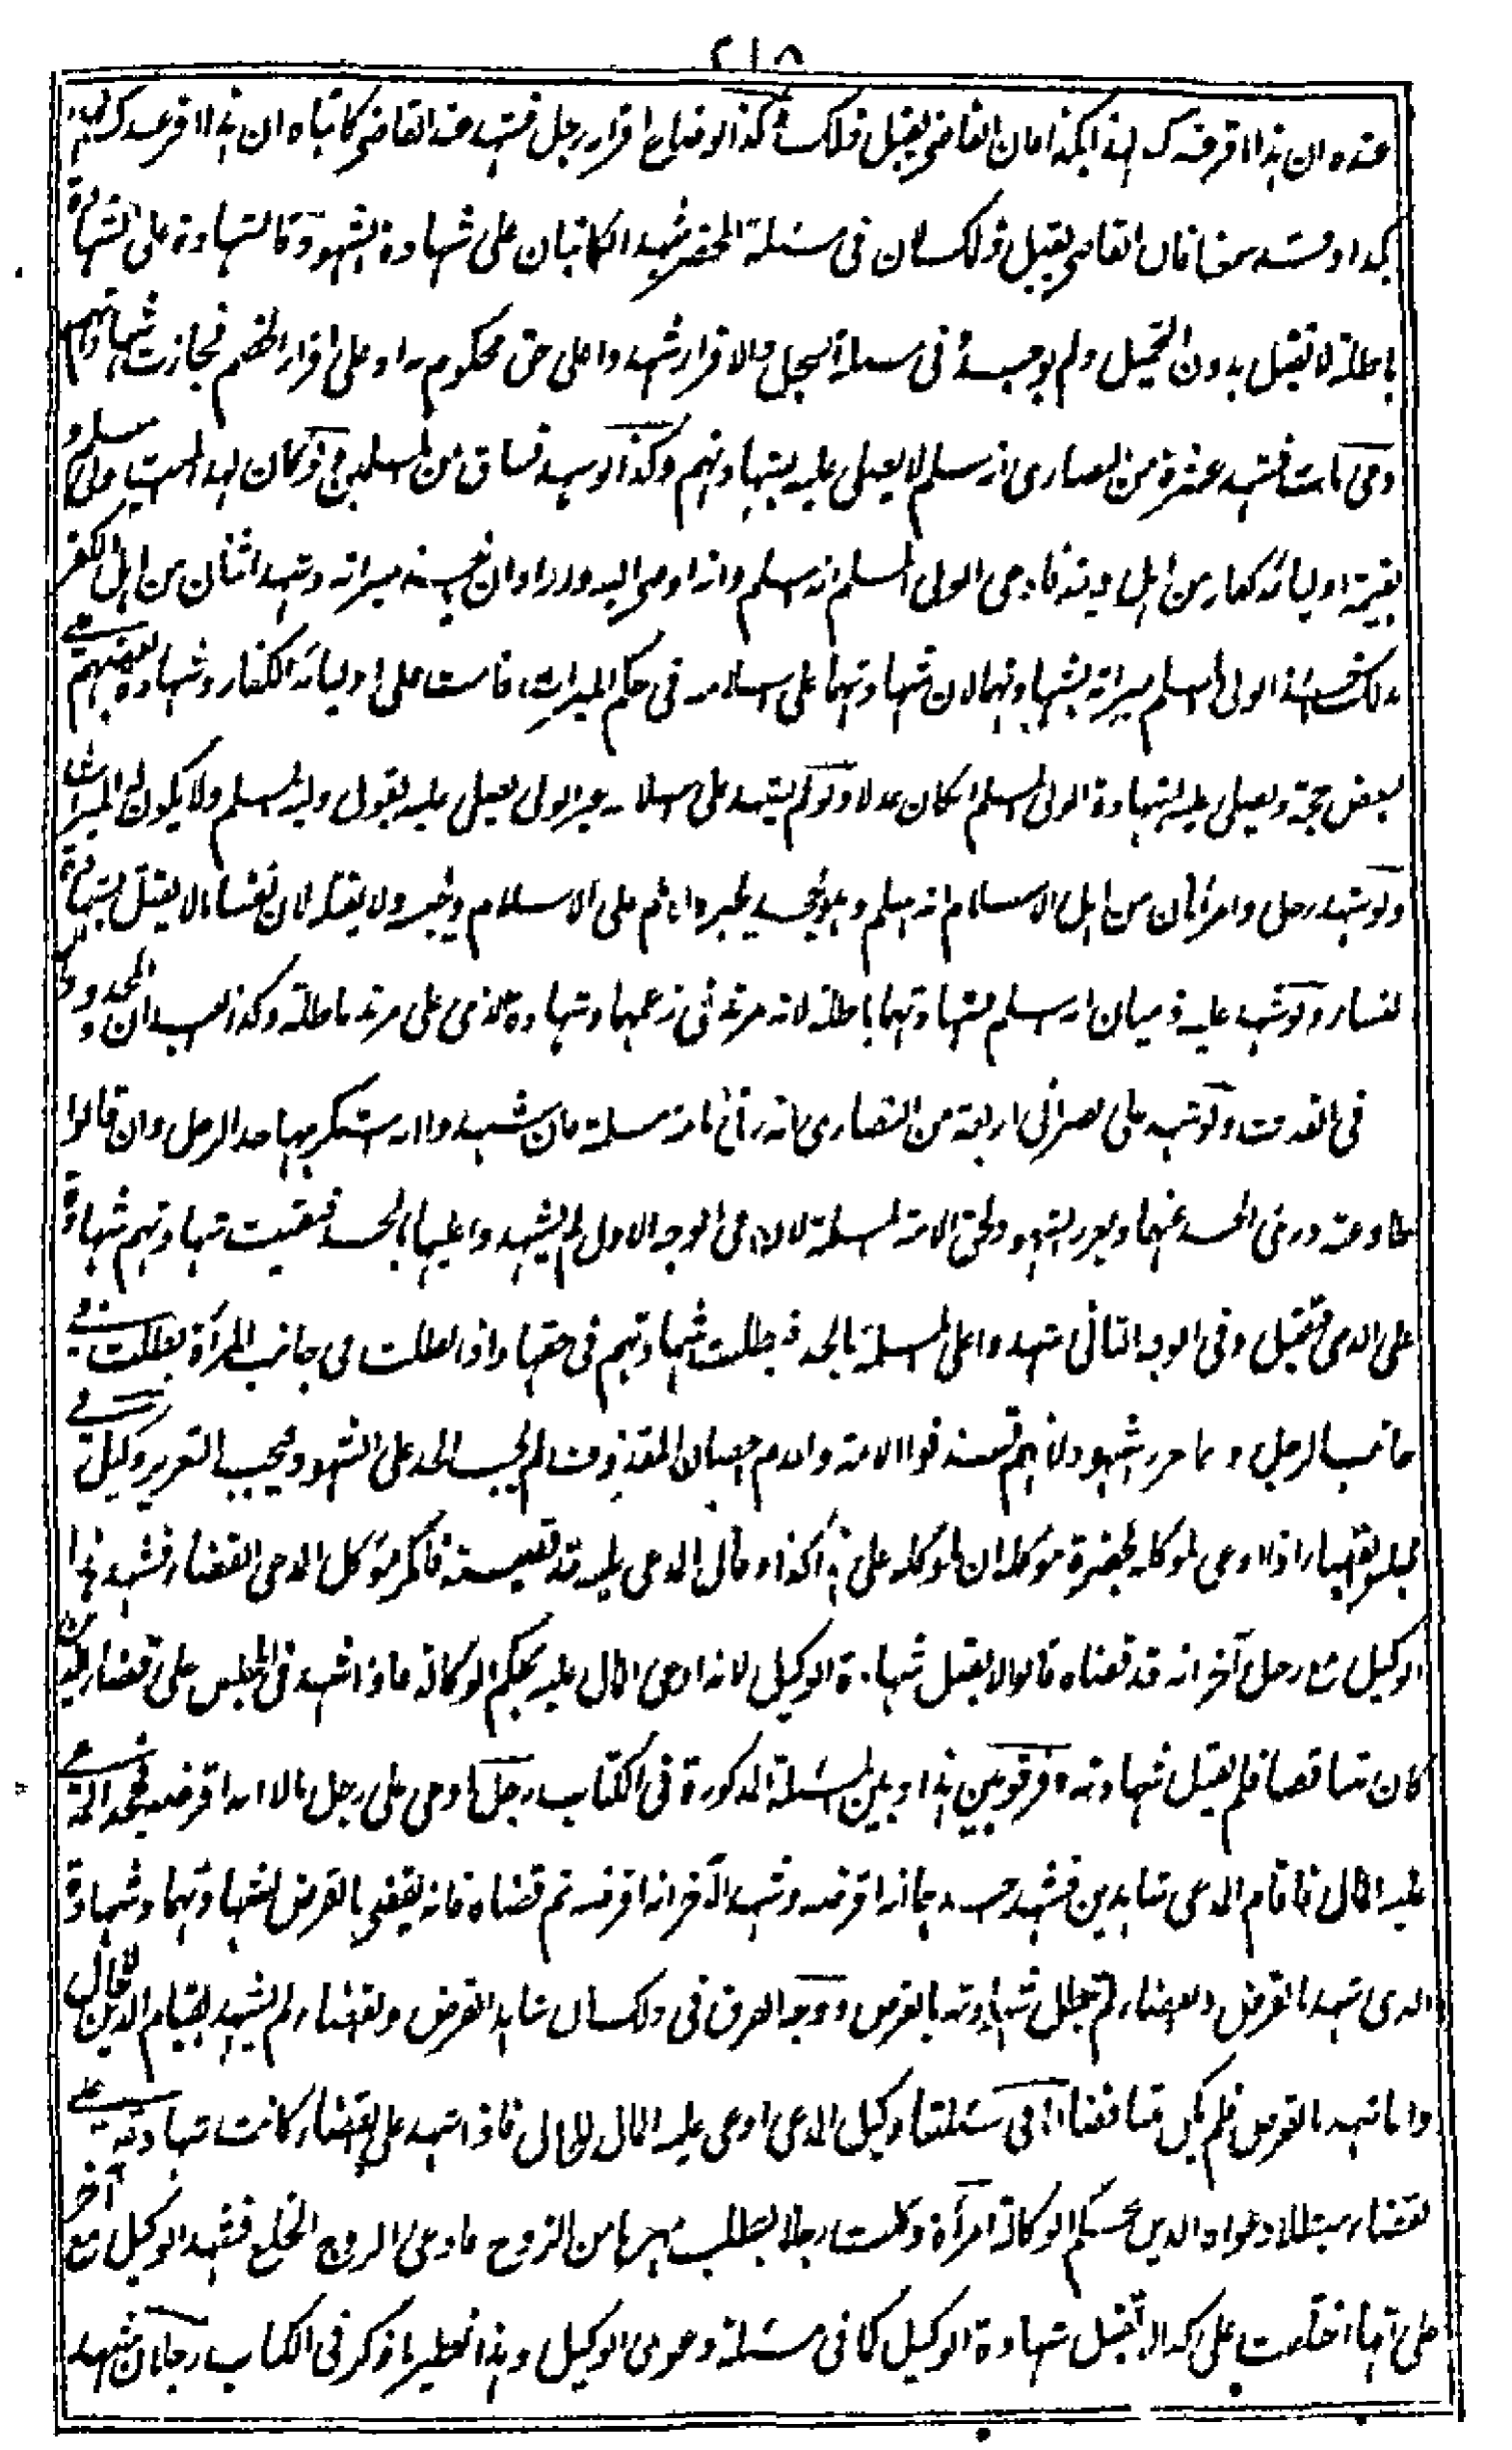 ٢١٥
عنده ان هذا اقر عندك لهذا بكذا فان القاضي يقبل ذلك وكذا لو ضاع اقرار رجل فشهد عند القاضي كاتباه ان هذا اقر عندك لهذا
بكذا وقد سمعنا فان القاضي يقبل ذلك لان في مسئلة المحضر شهد الكاتبان على شهادة الشهود والشهادة على الشهادة
باطلة لا تقبل بدون التحميل ولم يوجد وفي مسئلة السجل والاقرار شهدوا على حق محكوم به او على اقرار الخصم فجازت شهادتهم
ذمي مات فشهد عشرة من النصارى انه اسلم لا يصلى عليه بشهادتهم وكذا لو شهد فساق من المسلمين ولو كان لهذا الميت ولي مسلم و
بقية اوليائه كفار من اهل دينه فادعى الولي المسلم انه اسلم وانه اوصى اليه واراد ان ميراثه وشهد اثنان من اهل الكفر
بذلك الولي المسلم ميراثه بشهادتهما لان شهادتهما على اسلامه في حكم الميراث قامت على اوليائه الكفار وشهادة بعضهم على
بعض حجة ويصلى عليه بشهادة الولي المسلم ان كان عدلا ولو لم يشهد على اسلامه غير الولي يصلى عليه بقول وليه المسلم ولا يكون له الميراث
ولو شهد رجل وامرأتان من اهل الاسلام انه اسلم وهو يجحد يجبر على الاسلام ولا يقتل لان نفسا لا يقتل بشهادة
النساء ولو شهد عليه ذميان انه اسلم فشهادتهما باطلة لانه مرتد في زعمهما وشهادة الذمي على مرتد باطلة وكذا العبدان والمحدودان
في القذف ولو شهد على نصراني اربعة من النصارى انه زنى بامة مسلمة فان شهدوا انه استكرهها حد الرجل وان قالوا
طاوعته درئ الحد عنهما ويعزر الشهود لحق الامة المسلمة لان في الوجه الاول لم يشهدوا عليها بالحد فبقيت شهادتهم شهادة
على الذمي فتقبل وفي الوجه الثاني شهدوا على المسلمة بالحد فبطلت شهادتهم في حقها واذا بطلت في جانب المرأة بطلت في
جانب الرجل وانما عزر الشهود لانهم قذفوا الامة ولعدم احصان المقذوف لم يجب الحد على الشهود ويجب التعزير وكيل في
مجلس القضاء اذا ادعى لموكله بحضرة موكله ان لموكله على هذا كذا وقال المدعى عليه قد قضيته فانكر موكل المدعي القضاء فشهد هذا
الوكيل مع رجل آخر انه قد قضاه قالوا لا يقبل شهادة الوكيل لانه ادعى المال عليه بحكم الوكالة فاذا شهد في المجلس على قضاء الدين
كان متناقضا فلم يقبل شهادته وفرقوا بين هذا وبين المسئلة المذكورة في الكتاب رجل ادعى على رجل مالا انه اقرضه فجحد المدعى
عليه المال فاقام المدعي شاهدين فشهد احدهما انه اقرضه وشهد الآخر انه اقرضه ثم قضاه فانه يقضى بالقرض بشهادتهما وشهادة
الذي شهد بالقرض والقضاء لم تبطل شهادته بالقرض ووجه الفرق في ذلك ان شاهد القرض والقضاء لم يشهد بقيام الدين للحال
وانما شهد بالقرض فلم يكن متناقضا اما في مسئلتنا وكيل المدعي ادعى عليه المال للحال فاذا شهد على القضاء كانت شهادته على
القضاء مبطلا دعواه الدين بحكم الوكالة امرأة وكلت رجلا بطلب مهرها من الزوج فادعى الزوج الخلع فشهد الوكيل مع آخر
على انها اختلعت على كذا لا تقبل شهادة الوكيل كما في مسئلة دعوى الوكيل وهذا نظير ما ذكر في الكتاب رجلان شهد